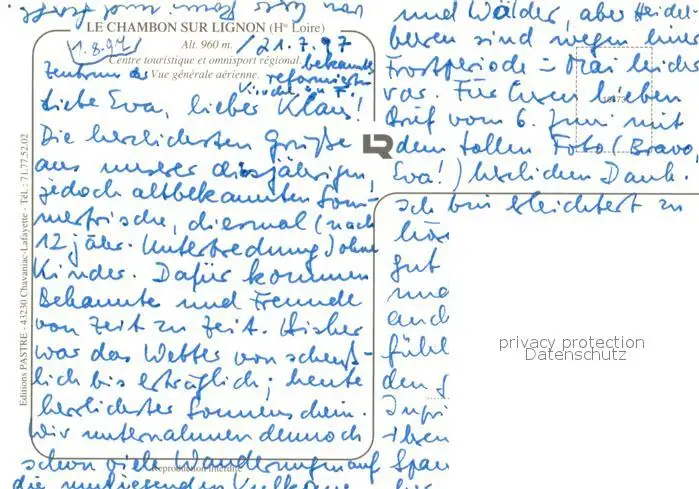 LE CHAMBON SUR LIGNON (Hte Loire)
1.8.97
Alt. 960 m.
/21.7.97
Centre touristique et omnisport régional
Vue générale aérienne.
Zentrum der bekannten
reformierten
Kirche in F.
Liebe Eva, lieber Klaus!
Die herzlichsten Grüße
aus unserer diesjährigen,
jedoch altbekannten Som-
merfrische, diesmal (nach
12 jähr. Unterbrechung) ohne
Kinder. Dafür kommen
Bekannte und Freunde
von Zeit zu Zeit. Bisher
war das Wetter von scheuß-
lich bis erträglich; heute
herrlichster Sonnenschein.
Wir unternahmen dennoch
schon viele Wanderungen auf
die umliegenden Vulkane
und Wälder, aber Heidel-
beeren sind wegen einer
Frostperiode im Mai leider
rar. Für Euren lieben
Brief vom 6. Juni mit
dem tollen Foto (Bravo,
Eva!) herzlichen Dank.
Ich bin erleichtert zu
hör
gut
und
auch
fühl
den
Ihren
Spa
Editions PASTRE - 43230 Chavaniac-Lafayette - Tél. : 71.77.52.02
Reproduction interdite
privacy protection
Datenschutz